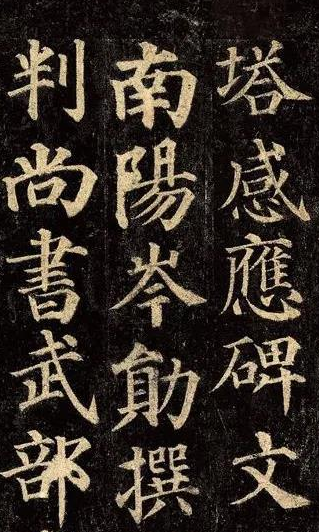 塔感應碑文
南陽岑勛撰
判尚書武部